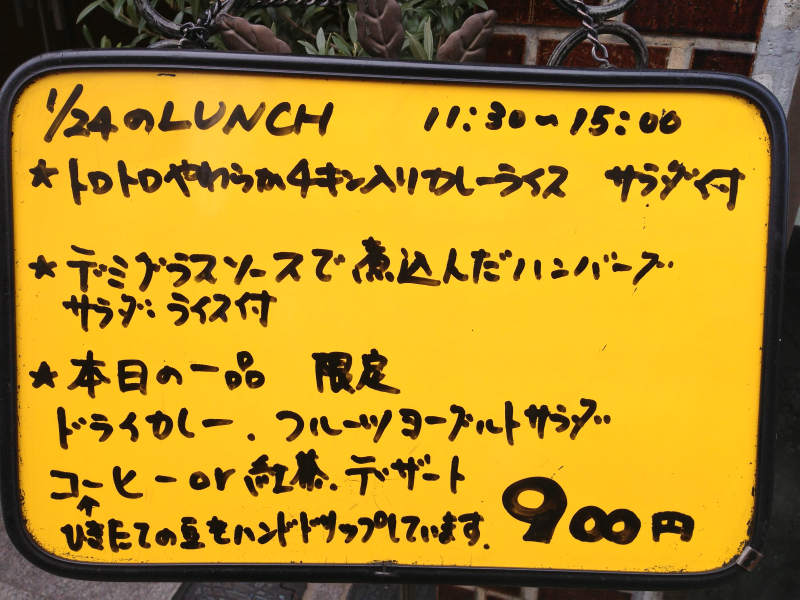 1/24のLUNCH 11:30〜15:00
★トロトロやわらかチキン入りカレーライス サラダ付
★デミグラスソースで煮込んだハンバーグ
サラダ・ライス付
★本日の一品 限定
ドライカレー、フルーツヨーグルトサラダ
コーヒーor紅茶、デザート
↑
ひきたての豆をハンドドリップしています。 900円